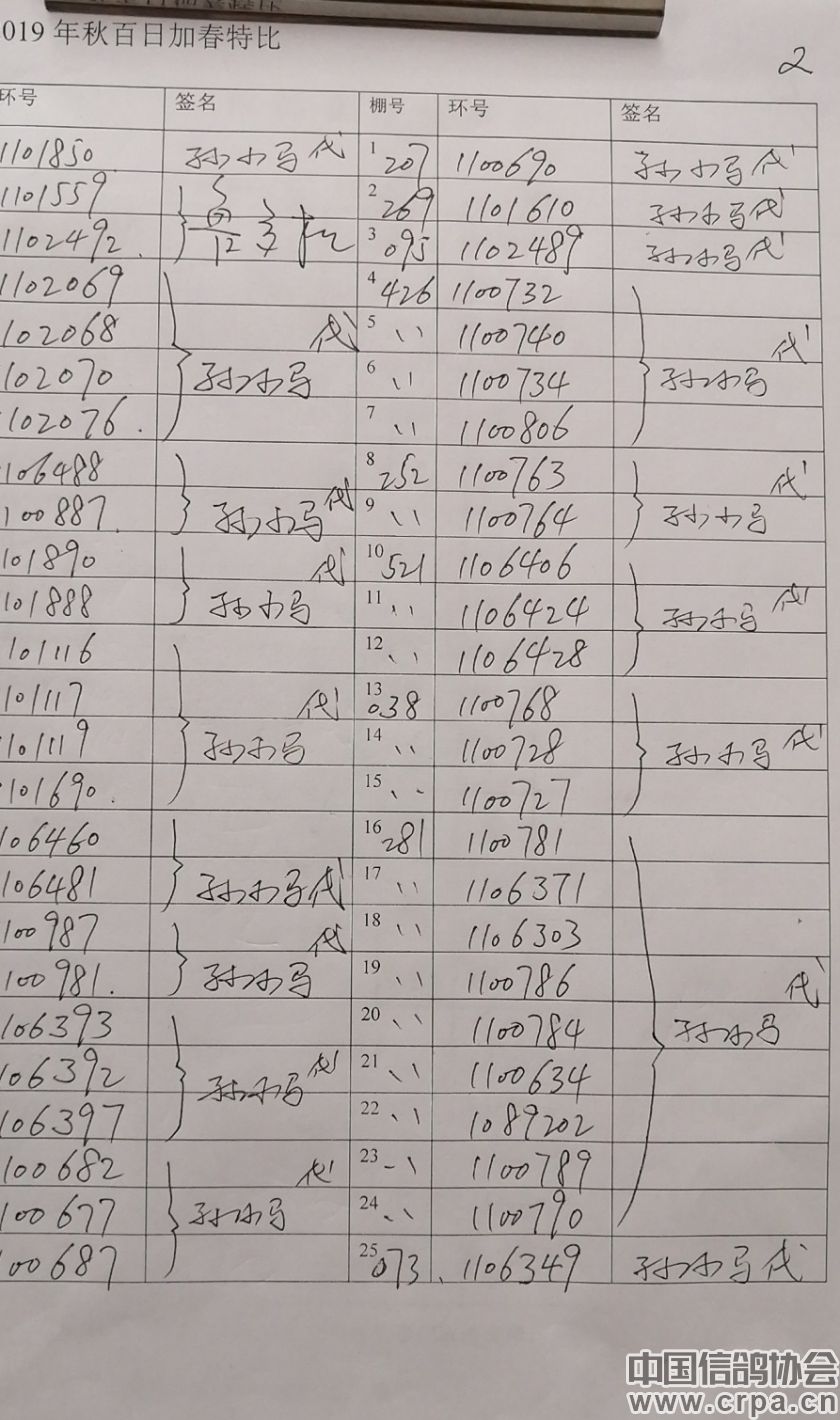 019 年秋百日加春特比
2
环号 签名 棚号 环号 签名
1101850 孙小马代 1 207 1100690 孙小马代
1101559 2 269 1101610 孙小马代
1102492. 3 095 1102489 孙小马代
1102069 4 426 1100732
102068 代 5 、、 1100740 代
102070 孙小马 6 、、 1100734 孙小马
102076. 7 、、 1100806
106488 8 252 1100763 代
100887. 孙小马代 9 、、 1100764 孙小马
101890 代 10 521 1106406
101888 孙小马 11 、、 1106424 孙小马代
101116 12 、、 1106428
101117 代 13 038 1100768
101119 孙小马 14 、、 1100728 孙小马代
101690. 15 、、 1100727
106460 16 281 1100781
106481 孙小马代 17 、、 1106371
100987 代 18 、、 1106303
100981. 孙小马 19 、、 1100786 代
106393 20 、、 1100784 孙小马
106392 孙小马代 21 、、 1100634
106397 22 、、 1089202
100682 代 23 、、 1100789
100677 孙小马 24 、、 1100790
00687 25 073. 1106349 孙小马代
中国信鸽协会
www.crpa.cn